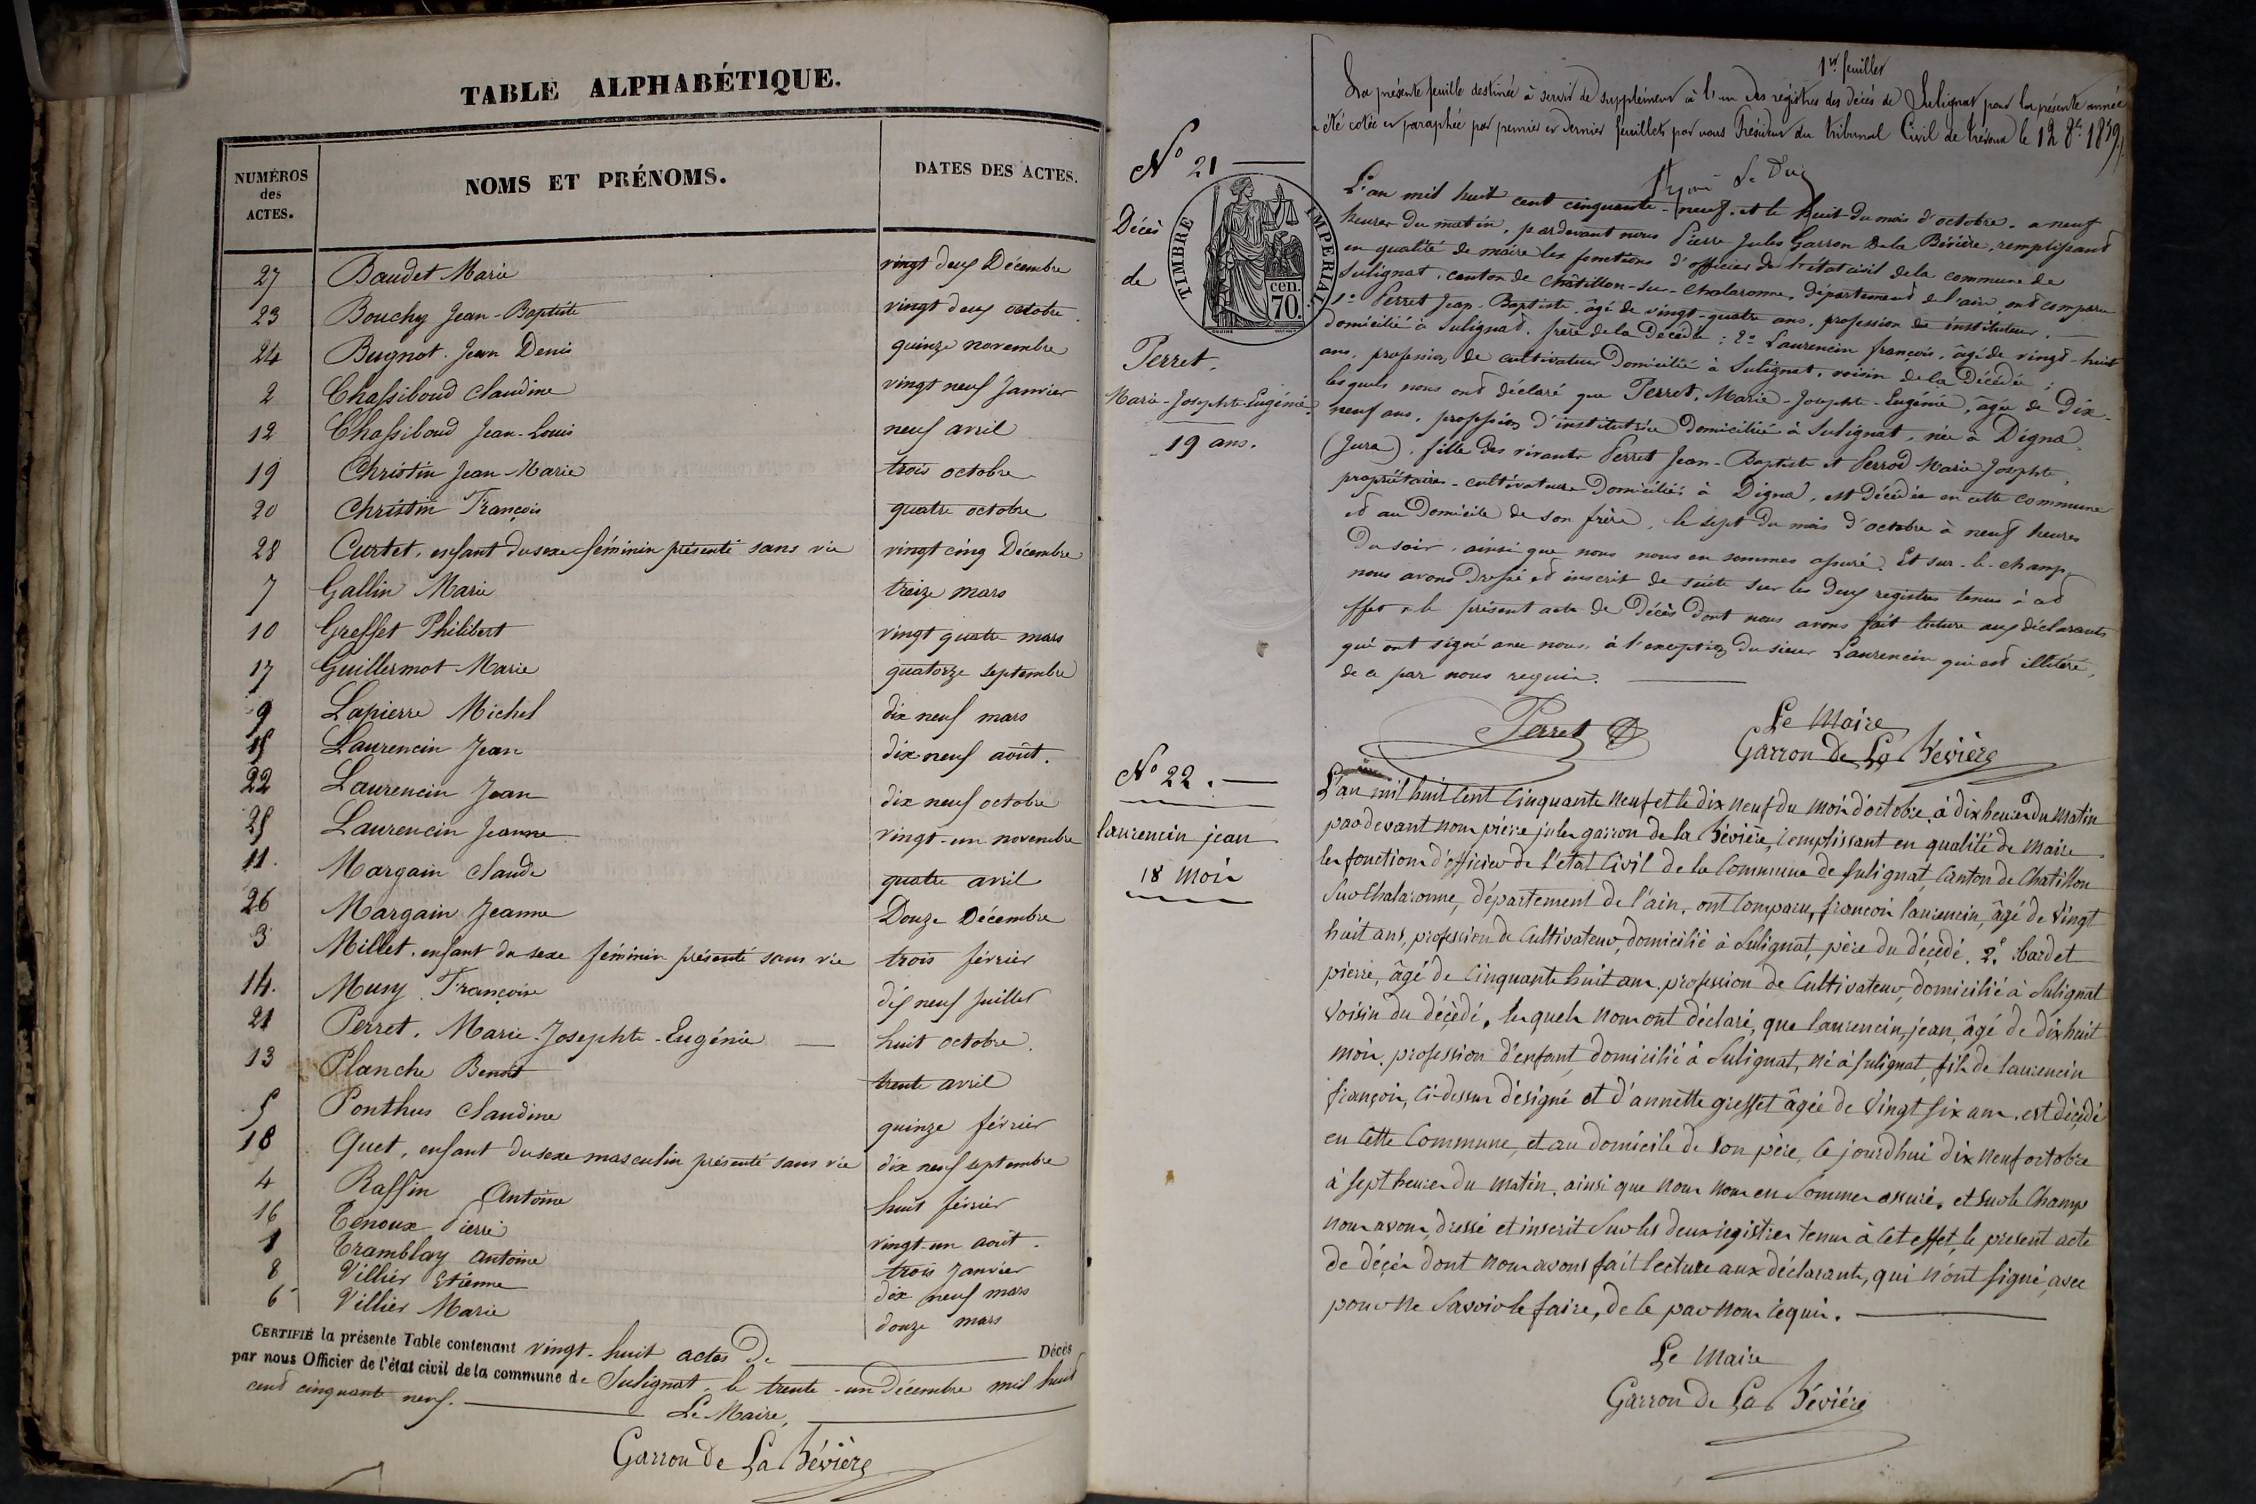 TABLE ALPHABÉTIQUE.
NUMÉROS des ACTES. NOMS ET PRÉNOMS. DATES DES ACTES.
27 Baudet Marie vingt deux Décembre
23 Bouchy Jean-Baptiste vingt deux octobre
24 Bugnot Jean Denis quinze novembre
2 Chassiboud Claudine vingt neuf Janvier
12 Chassiboud Jean-Louis neuf avril
19 Christin Jean-Marie trois octobre
20 Christin François quatre octobre
28 Curtet, enfant du sexe féminin présenté sans vie vingt cinq Décembre
7 Gallin Marie treize mars
10 Greffet Philibert vingt quatre mars
17 Guillermot Marie quatorze septembre
9 Lapierre Michel dix neuf mars
15 Laurencin Jean dix neuf août.
22 Laurencin Jean dix neuf octobre
25 Laurencin Jeanne vingt-un novembre
11. Margain Claude quatre avril
26 Margain Jeanne Douze Décembre
3 Millet, enfant du sexe féminin présenté sans vie trois février
14. Musy Françoise dix neuf Juillet
21 Perret, Marie-Josephte-Eugénie huit octobre.
13 Planche Benoit trente avril
5 Ponthus Claudine quinze février
18 Quet, enfant du sexe masculin présenté sans vie dix neuf septembre
4 Raffin Antoine huit février
16 Tenoux Pierre vingt-un août.
1 Tramblay Antoine trois Janvier
8 Villier Etienne dix neuf mars
6 Villier Marie douze mars
CERTIFIÉ la présente Table contenant vingt-huit actes de Décès
par nous Officier de l'état civil de la commune de Sulignat, le trente-un décembre mil huit
cent cinquante neuf. Le Maire,
Garron de La Bévière
1er feuillet
La présente feuille destinée à servir de supplément à l'un des registres des décès de Sulignat pour la présente année
a été cotée et paraphée par premier et dernier feuillets par nous Président du tribunal Civil de Trévoux le 12 8bre 1859.
N° 21
Décès
de
Perret.
Marie-Josephte-Eugénie
19 ans.
TIMBRE IMPERIAL
70 cen.
L'an mil huit cent cinquante-neuf, et le huit du mois d'octobre, a neuf
heures du matin, pardevant nous Pierre Jules Garron de La Bévière, remplissant
en qualité de maire les fonctions d'officier de l'état civil de la commune de
Sulignat, canton de Châtillon-sur-Chalaronne, département de l'ain, ont comparu
1° Perret Jean-Baptiste, âgé de vingt-quatre ans, profession de instituteur,
domicilié à Sulignat, frère de la Décédée : 2° Laurencin françois, âgé de vingt-huit
ans, profession de cultivateur Domicilié à Sulignat, voisin de la Décédée ;
lesquels nous ont déclaré que Perret, Marie-Josephte-Eugénie, âgée de Dix-
neuf ans, profession d'institutrice Domiciliée à Sulignat, née à Digna
(Jura), fille des vivants Perret Jean-Baptiste et Perrod Marie Josephte,
propriétaires-cultivateurs Domiciliés à Digna, est décédée en cette commune
et au Domicile de son frère, le sept du mois d'octobre à neuf heures
Du soir, ainsi que nous nous en sommes assuré. Et sur-le-champ
nous avons Dressé et inscrit de suite sur les deux registres tenus à cet
effet, le présent acte de Décès dont nous avons fait lecture aux déclarants
qui ont signé avec nous, à l'exception du sieur Laurencin qui est illitéré,
de ce par nous requis.
Perret
Le Maire
Garron de La Bévière
N° 22.
laurencin jean
18 mois
L'an mil huit Cent Cinquante Neuf et le dix neuf du mois d'octobre, à dix heures du Matin
pardevant nous pierre jules garron de la Bévière, remplissant en qualité de Maire
les fonctions d'officier de l'etat Civil de la Commune de Sulignat, Canton de Chatillon
Sur Chalaronne, département de l'ain, ont Comparu, françois laurencin, âgé de Vingt
huit ans, profession de Cultivateur, domicilié à Sulignat, père du décédé. 2° Bardet
pierre, âgé de Cinquante huit ans, profession de Cultivateur, domicilié à Sulignat
Voisin du décédé, lesquels nous ont déclaré, que laurencin, jean, âgé de dix huit
mois, profession d'enfant, domicilié à Sulignat, Né à Sulignat, fils de laurencin
françois, Ci-dessus désigné et d'annette greffet âgée de Vingt six ans, est décédé
en Cette Commune, et au domicile de son père, Ce jourdhui dix neuf octobre
à sept heures du matin, ainsi que nous nous en Sommes assuré, et sur le Champ
nous avons dressé et inscrit Sur les deux registres tenus à Cet effet, le present acte
de décès dont nous avons fait lecture aux déclarants, qui n'ont signé, avec
pour Ne Savoir le faire, de Ce par nous requis.
Le Maire
Garron de La Bévière